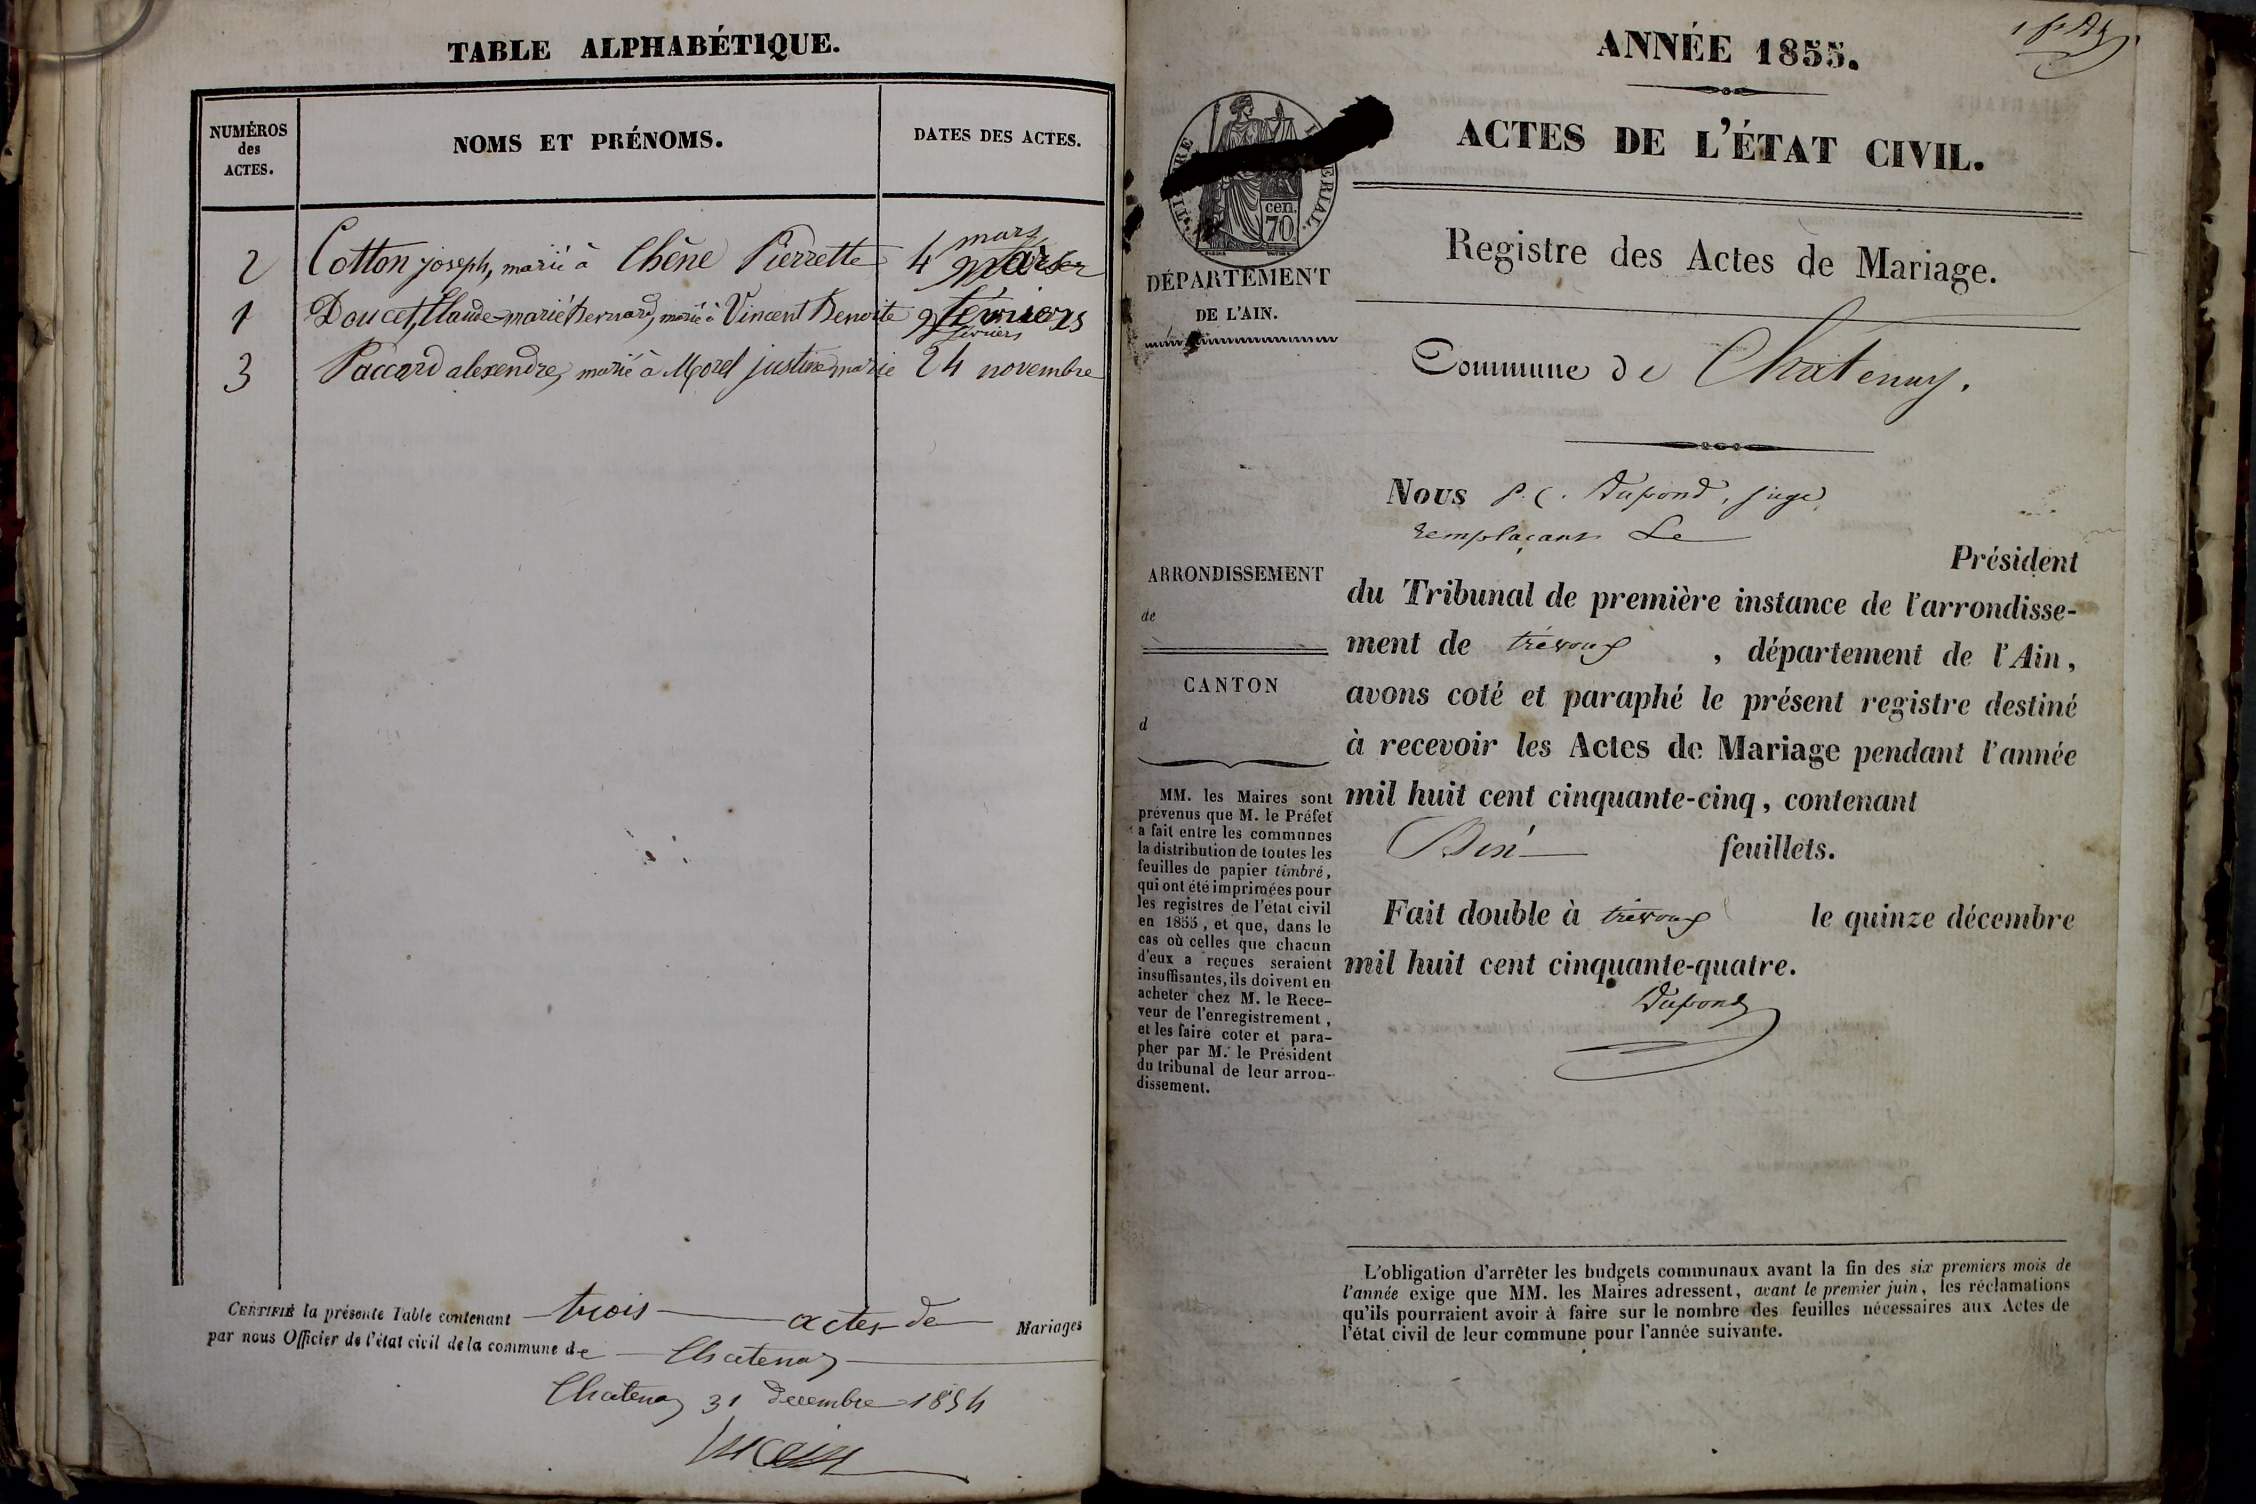 TABLE ALPHABÉTIQUE.
NUMÉROS
des
ACTES.
NOMS ET PRÉNOMS.
DATES DES ACTES.
2 Cotton joseph, marié à Chêne Pierrette 4 mars
1 Doucet, Claude-marie Bernard, marié à Vincent Benoite 9 février
février
3 Paccard alexendre, marié à Morel justine marie 24 novembre
CERTIFIÉ la présente Table contenant trois actes de Mariages
par nous Officier de l'état civil de la commune de Chatenay
Chatenay 31 decembre 1854
ANNÉE 1855.
ACTES DE L'ÉTAT CIVIL.
cen.
70
DÉPARTEMENT
DE L'AIN.
Registre des Actes de Mariage.
Commune de Chatenay.
Nous P. C. Dupond, juge
remplaçant Le
Président
du Tribunal de première instance de l'arrondisse-
ment de trévoux, département de l'Ain,
avons coté et paraphé le présent registre destiné
à recevoir les Actes de Mariage pendant l'année
mil huit cent cinquante-cinq, contenant
feuillets.
Fait double à trévoux le quinze décembre
mil huit cent cinquante-quatre.
Dupond
ARRONDISSEMENT
de
CANTON
d
MM. les Maires sont
prévenus que M. le Préfet
a fait entre les communes
la distribution de toutes les
feuilles de papier timbré,
qui ont été imprimées pour
les registres de l'état civil
en 1855, et que, dans le
cas où celles que chacun
d'eux a reçues seraient
insuffisantes, ils doivent en
acheter chez M. le Rece-
veur de l'enregistrement,
et les faire coter et para-
pher par M. le Président
du tribunal de leur arron-
dissement.
L'obligation d'arrêter les budgets communaux avant la fin des six premiers mois de
l'année exige que MM. les Maires adressent, avant le premier juin, les réclamations
qu'ils pourraient avoir à faire sur le nombre des feuilles nécessaires aux Actes de
l'état civil de leur commune pour l'année suivante.